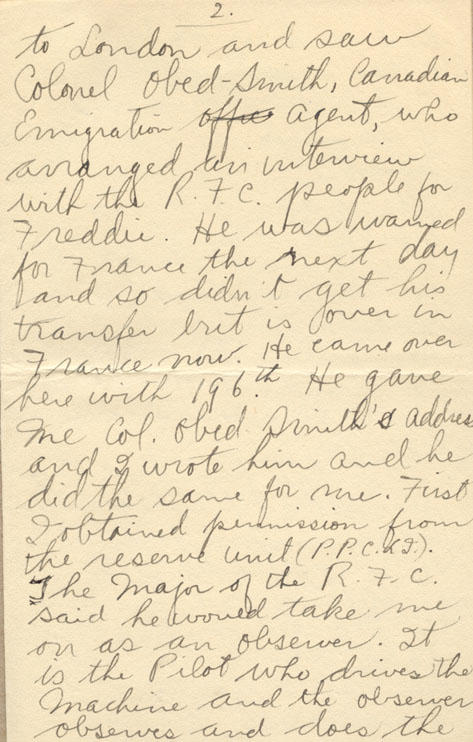 2.
to London and saw
Colonel Obed-Smith, Canadian
Emigration offic Agent, who
arranged an interview
with the R.F.C. people for
Freddie. He was warned
for France the next day
and so didn't get his
transfer but is over in
France now. He came over
here with 196th. He gave
me Col. Obed Smith's address
and I wrote him and he
did the same for me. First
I obtained permission from
the reserve unit (P.P.C.L.I.).
The Major of the R.F.C.
said he would take me
on as an observer. It
is the Pilot who drives the
Machine and the observer
observes and does the